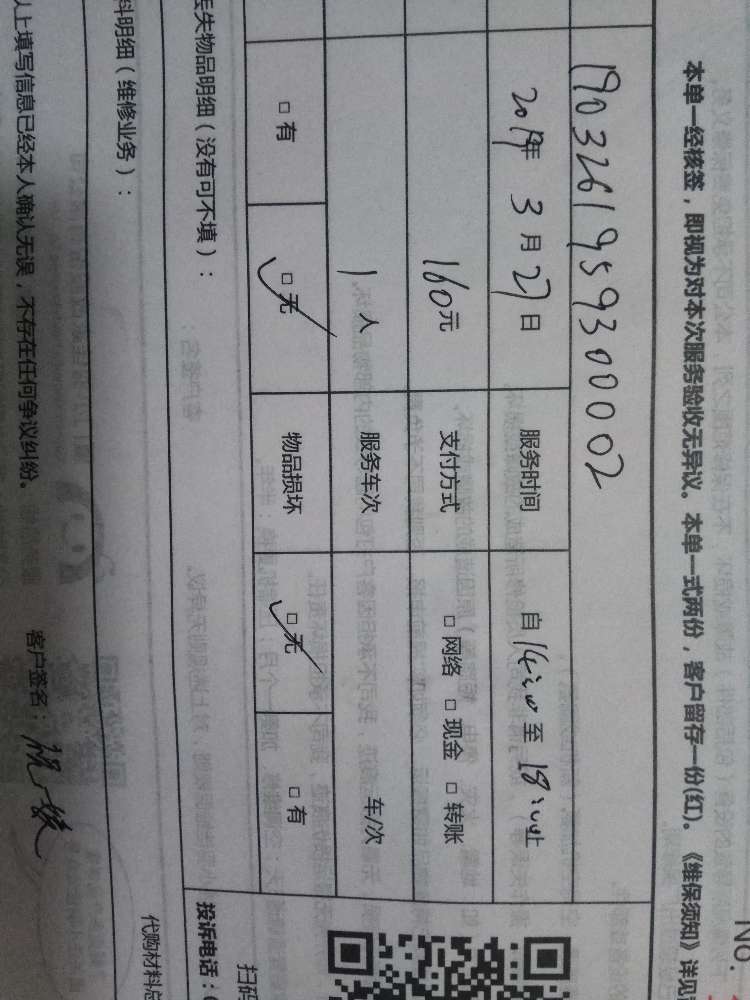 No.
本单一经核签，即视为对本次服务验收无异议。本单一式两份，客户留存一份(红)。《维保须知》详见
1903261959300002
2019年 3月27日 服务时间 自14:00至18:00止
160元 支付方式 □网络 □现金 □转账
1人 服务车次 车/次
□有 □无 物品损坏 □无 □有
失物品明细（没有可不填）：
投诉电话：
扫码
料明细（维修业务）：
代购材料总
以上填写信息已经本人确认无误，不存在任何争议纠纷。
客户签名：